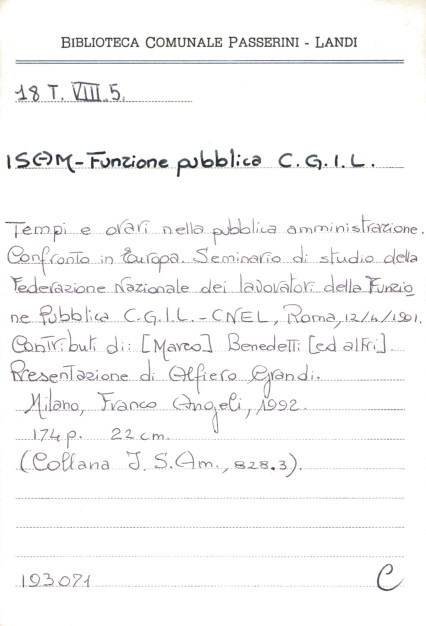 BIBLIOTECA COMUNALE PASSERINI - LANDI
18 T. VIII. 5.
ISAM - Funzione pubblica C.G.I.L.
Tempi e orari nella pubblica amministrazione.
Confronto in Europa. Seminario di studio della
Federazione Nazionale dei lavoratori della Funzio
ne Pubblica C.G.I.L. - CNEL, Roma, 12/4/1991.
Contributi di: [Marco] Benedetti [ed altri].
Presentazione di Alfiero Grandi.
Milano, Franco Angeli, 1992.
174 p. 22 cm.
(Collana I.S.Am., 828.3).
193071 C